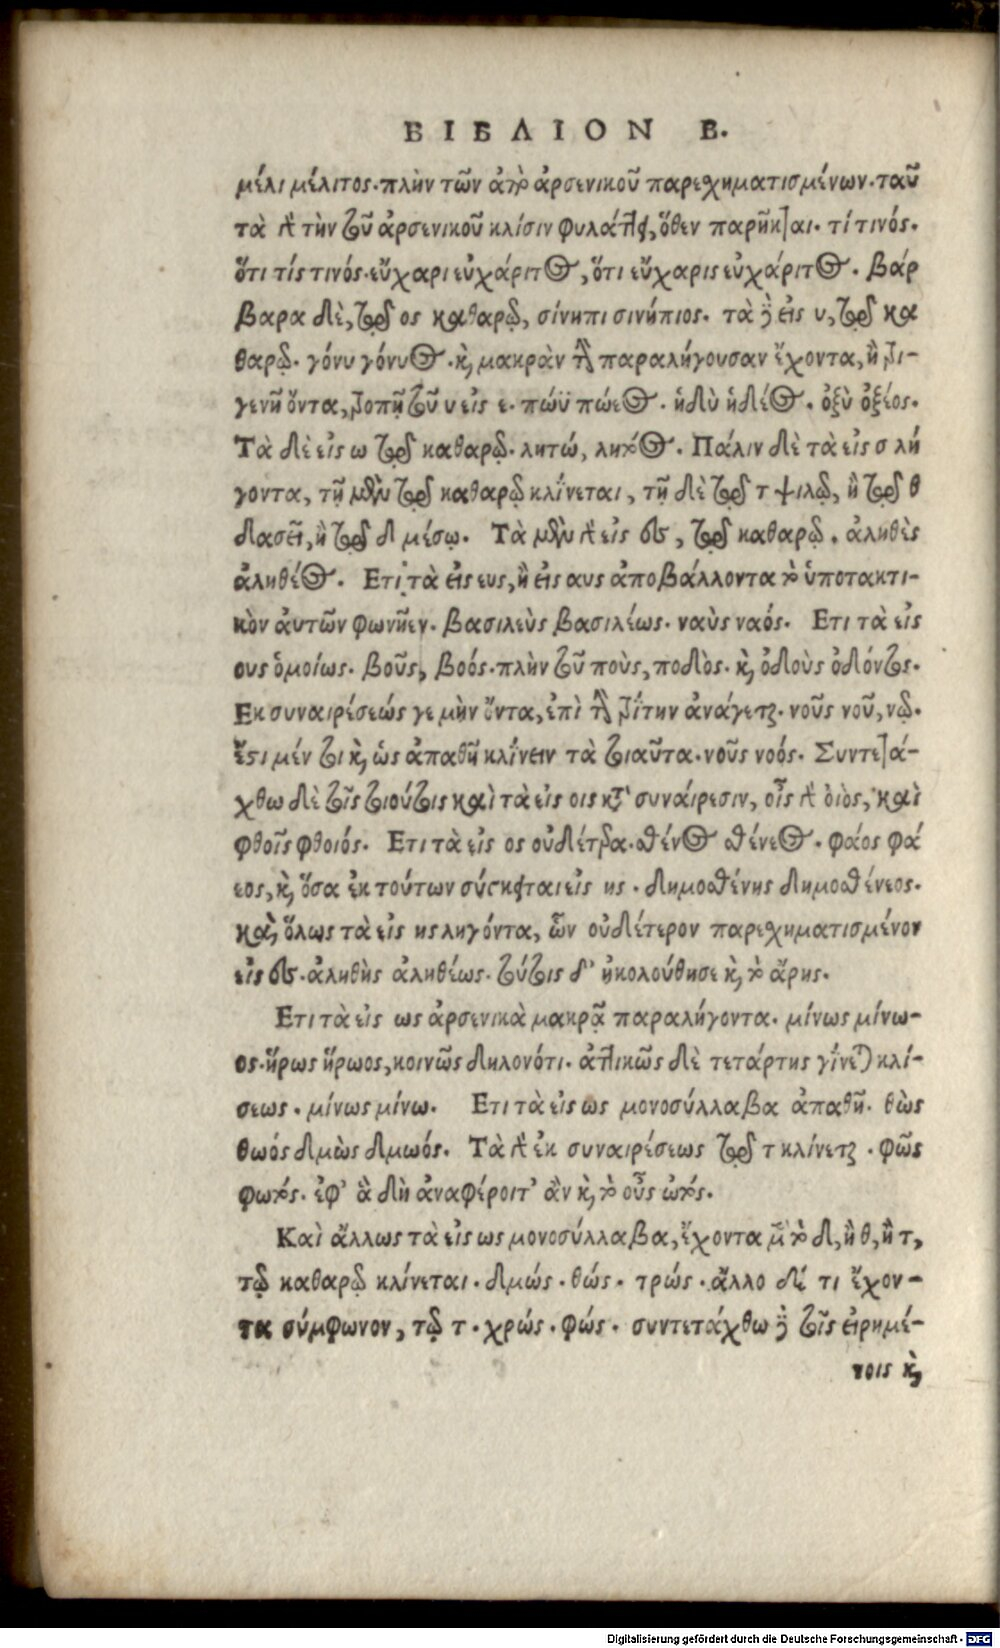 ΒΙΒΛΙΟΝ Β.
μέλι μέλιτος. πλὴν τῶν ἀπὸ ἀρσενικοῦ παρεσχηματισμένων. ταῦ
τὰ γὰρ τὴν τοῦ ἀρσενικοῦ κλίσιν φυλάττει, ὅθεν παρῆκται. τί τινός.
ὅτι τίς τινός. εὔχαρι εὐχάριτος, ὅτι εὔχαρις εὐχάριτος. βάρ
βαρα δὲ, διὰ τοῦ ος καθαροῦ, σίνηπι σινήπιος. τὰ δὲ εἰς υ, διὰ τοῦ κα
θαροῦ. γόνυ γόνυος. καὶ μακρὰν τὴν παραλήγουσαν ἔχοντα, ἢ τρι-
γενῆ ὄντα, τροπῇ τοῦ υ εἰς ε. πώϋ πώεος. ἡδὺ ἡδέος. ὀξὺ ὀξέος.
Τὰ δὲ εἰς ω διὰ τοῦ καθαροῦ. λητώ, λητόος. Πάλιν δὲ τὰ εἰς σ λή
γοντα, τῇ μὲν διὰ τοῦ καθαροῦ κλίνεται, τῇ δὲ διὰ τοῦ τ ψιλοῦ, ἢ διὰ τοῦ θ
δασεῖ, ἢ διὰ τοῦ δ μέσῳ. Τὰ μὲν γὰρ εἰς ες, διὰ τοῦ καθαροῦ. ἀληθὲς
ἀληθέος. Ετι τὰ εἰς ευς, ἢ εἰς αυς ἀποβάλλοντα τὸ ὑποτακτι-
κὸν αὐτῶν φωνῆεν. βασιλεὺς βασιλέως. ναὺς ναός. Ετι τὰ εἰς
ους ὁμοίως. βοῦς, βοός. πλὴν τοῦ ποὺς, ποδὸς. καὶ ὀδοὺς ὀδόντος.
Εκ συναιρέσεώς γε μὴν ὄντα, ἐπὶ τὴν τρίτην ἀνάγεται. νοῦς νοῦ, νῷ.
ἔστι μέν τοι καὶ ὡς ἀπαθῆ κλίνειν τὰ τοιαῦτα. νοῦς νοός. Συντετά-
χθω δὲ τοῖς τοιούτοις καὶ τὰ εἰς οις κατὰ συναίρεσιν, οἶς γὰρ ὀϊὸς, καὶ
φθοῖς φθοιός. Ετι τὰ εἰς ος οὐδέτερα. σθένος σθένεος. φάος φά
εος, καὶ ὅσα ἐκ τούτων σύγκειται εἰς ης. δημοσθένης δημοσθένεος.
καὶ ὅλως τὰ εἰς ης λήγοντα, ὧν οὐδέτερον παρεσχηματισμένον
εἰς ες. ἀληθὴς ἀληθέως. τούτοις δ' ἠκολούθησε καὶ τὸ ἄρης.
Ετι τὰ εἰς ως ἀρσενικὰ μακρᾷ παραλήγοντα. μίνως μίνω-
ος. ἥρως ἥρωος, κοινῶς δηλονότι. ἀττικῶς δὲ τετάρτης γίνεται κλί-
σεως. μίνως μίνω. Ετι τὰ εἰς ως μονοσύλλαβα ἀπαθῆ. θὼς
θωός δμὼς δμωός. Τὰ γὰρ ἐκ συναιρέσεως διὰ τοῦ τ κλίνεται. φῶς
φωτός. ἐφ' ἃ δὴ ἀναφέροιτ' ἂν καὶ τὸ οὖς ὠτός.
Καὶ ἄλλως τὰ εἰς ως μονοσύλλαβα, ἔχοντα μὲν τὸ δ, ἢ θ, ἢ τ,
τῷ καθαρῷ κλίνεται. δμώς. θώς. τρώς. ἄλλο δέ τι ἔχον-
τα σύμφωνον, τῷ τ. χρώς. φώς. συντετάχθω δὲ τοῖς εἰρημέ-
νοις καὶ
Digitalisierung gefördert durch die Deutsche Forschungsgemeinschaft - DFG